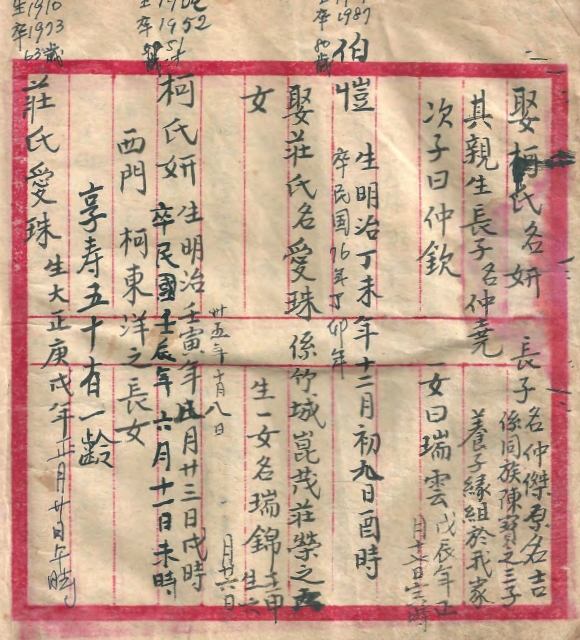 娶柯氏名妍 長子名仲傑原名吉
係同族陳寶之三子
其親生長子名仲堯 養子緣組於我家
次子曰仲欽 一女曰瑞雲 戊辰年正
伯愷 生明治丁未年十二月初九日酉時
卒民國76年丁卯年
娶莊氏名愛珠係竹城崑茂莊榮之女
女 生一女名瑞錦
月廿六日
卅五年十月八日
柯氏妍 生明治壬寅年 月廿三日戌時
卒民國壬辰年六月十一日未時
西門 柯東洋之長女
享壽五十有一齡
莊氏愛珠 生大正庚戌年正月廿日午時
卒1987
卒1952
生1910
卒1973
63歲